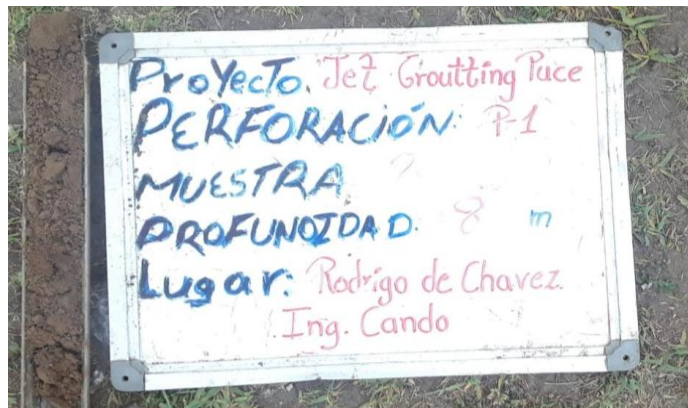 Proyecto. Jet Groutting Puce
PERFORACIÓN: P-1
MUESTRA
PROFUNDIDAD. 8 m
Lugar: Rodrigo de Chavez.
Ing. Cando